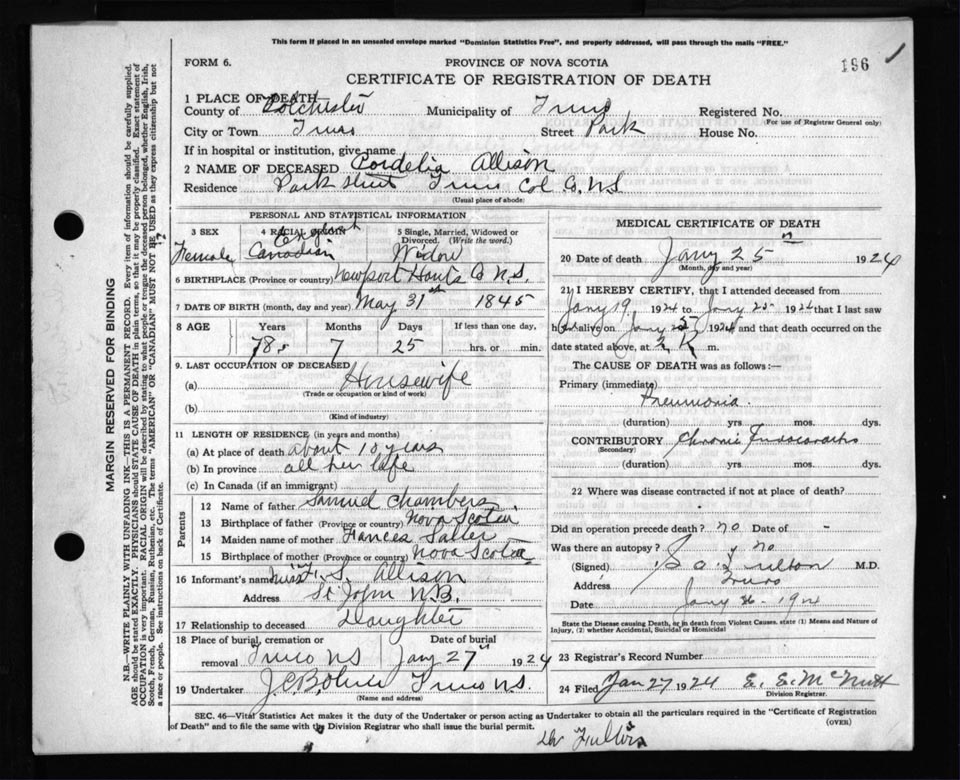 This form if placed in an unsealed envelope marked "Dominion Statistics Free", and properly addressed, will pass through the mails "FREE."
FORM 6.
PROVINCE OF NOVA SCOTIA
196
CERTIFICATE OF REGISTRATION OF DEATH
1 PLACE OF DEATH
County of Colchester Municipality of Truro Registered No.
(For use of Registrar General only)
City or Town Truro Street Park House No.
If in hospital or institution, give name
2 NAME OF DECEASED Cordelia Allison
Residence Park Street Truro Col Co. N.S.
(Usual place of abode)
PERSONAL AND STATISTICAL INFORMATION
3 SEX 4 RACIAL ORIGIN 5 Single, Married, Widowed or Divorced. (Write the word.)
Female Canadian Widow
6 BIRTHPLACE (Province or country) Newport Hants Co N.S.
7 DATE OF BIRTH (month, day and year) May 31st 1845
8 AGE Years Months Days If less than one day,
78 7 25 hrs. or min.
9. LAST OCCUPATION OF DECEASED
(a) Housewife
(Trade or occupation or kind of work)
(b)
(Kind of industry)
11 LENGTH OF RESIDENCE (in years and months)
(a) At place of death about 10 years
(b) In province all her life
(c) In Canada (if an immigrant)
Parents
12 Name of father Samuel Chambers
13 Birthplace of father (Province or country) Nova Scotia
14 Maiden name of mother Frances Salter
15 Birthplace of mother (Province or country) Nova Scotia
16 Informant's name Miss S. Allison
Address St John N.B.
17 Relationship to deceased Daughter
18 Place of burial, cremation or removal Truro NS
Date of burial Jany 27 1924
19 Undertaker Truro N.S.
(Name and address)
MEDICAL CERTIFICATE OF DEATH
20 Date of death Jany 25 1924
(Month, day and year)
21 I HEREBY CERTIFY, that I attended deceased from
Jany 19 1924 to Jany 25 1924 that I last saw
her alive on Jany 25 1924 and that death occurred on the
date stated above, at m.
The CAUSE OF DEATH was as follows:—
Primary (immediate) Pneumonia.
(duration) yrs mos. dys.
CONTRIBUTORY Chronic
(Secondary)
(duration) yrs. mos. dys.
22 Where was disease contracted if not at place of death?
Did an operation precede death? no Date of -
Was there an autopsy? no
(Signed) Fulton M.D.
Address Truro
Date Jany 26 - 1924
State the Disease causing Death, or in death from Violent Causes, state (1) Means and Nature of Injury, (2) whether Accidental, Suicidal or Homicidal
23 Registrar's Record Number
24 Filed Jan 27 1924 E. E. McNutt
Division Registrar.
SEC. 46—Vital Statistics Act makes it the duty of the Undertaker or person acting as Undertaker to obtain all the particulars required in the "Certificate of Registration of Death" and to file the same with the Division Registrar who shall issue the burial permit.
(OVER)
MARGIN RESERVED FOR BINDING
N.B.—WRITE PLAINLY WITH UNFADING INK—THIS IS A PERMANENT RECORD. Every item of information should be carefully supplied.
AGE should be stated EXACTLY. PHYSICIANS should STATE CAUSE OF DEATH in plain terms, so that it may be properly classified. Exact statement of
OCCUPATION is very important. RACIAL ORIGIN will be described by stating to what people or tongue the deceased person belonged, whether English, Irish,
Scotch, French, German, Russian, Ruthenian, etc. The terms "AMERICAN" OR "CANADIAN" MUST NOT BE USED as they express citizenship but not
a race or people. See instructions on back of Certificate.